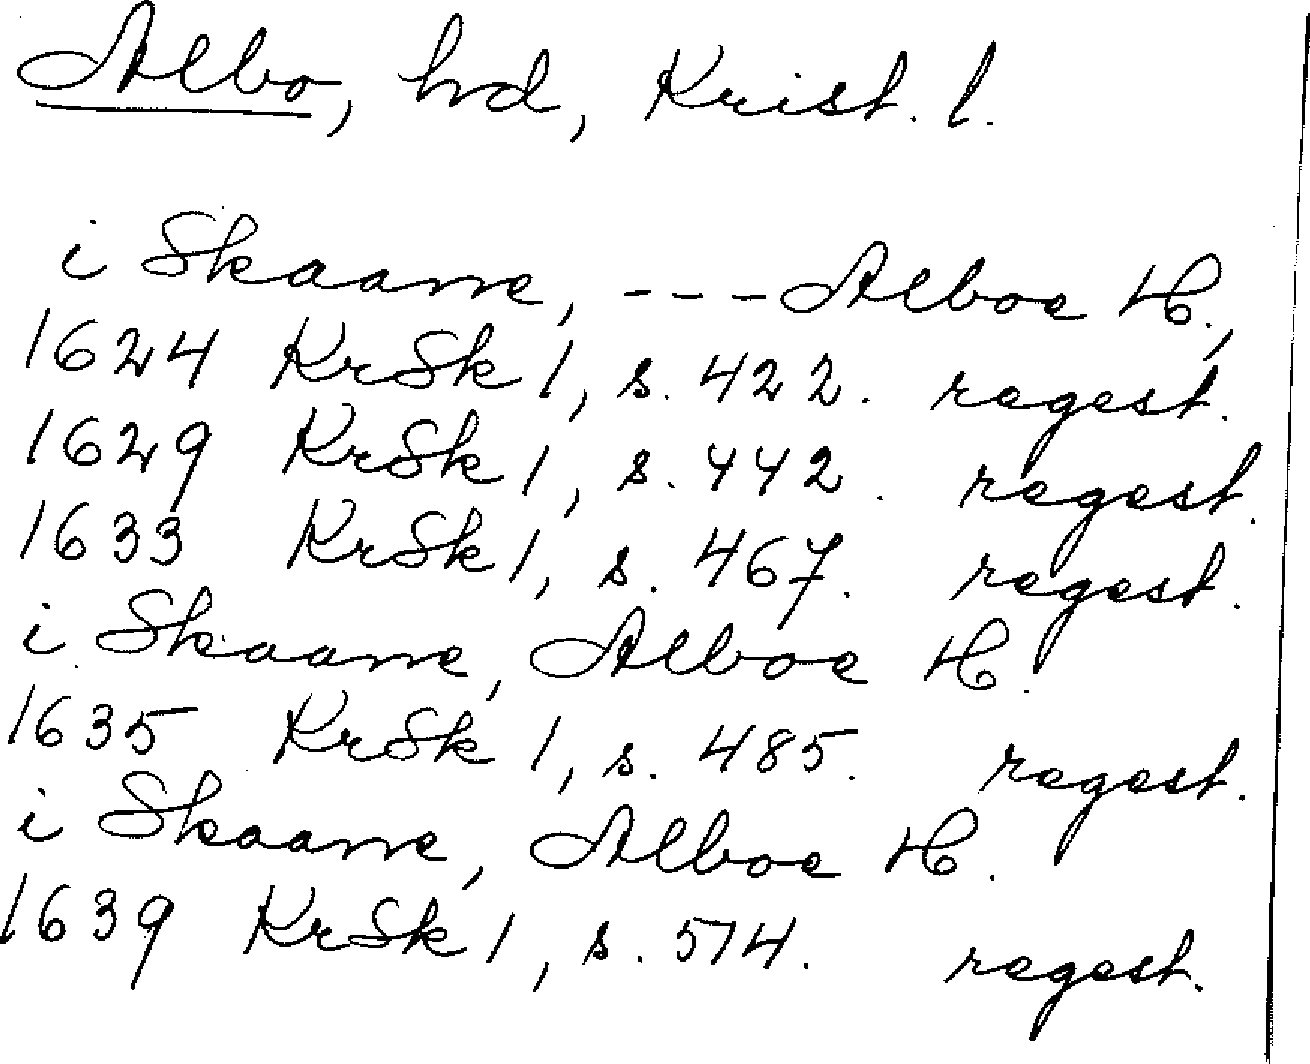 Albo, hd, Krist. l.
i Skaane, --- Alboe H.,
1624 KrSk 1, s. 422. regest.
1629 KrSk 1, s. 442. regest.
1633 KrSk 1, s. 467. regest.
i Skaane, Alboe H.
1635 KrSk 1, s. 485. regest.
i Skaane, Alboe H.
1639 KrSk 1, s. 514. regest.